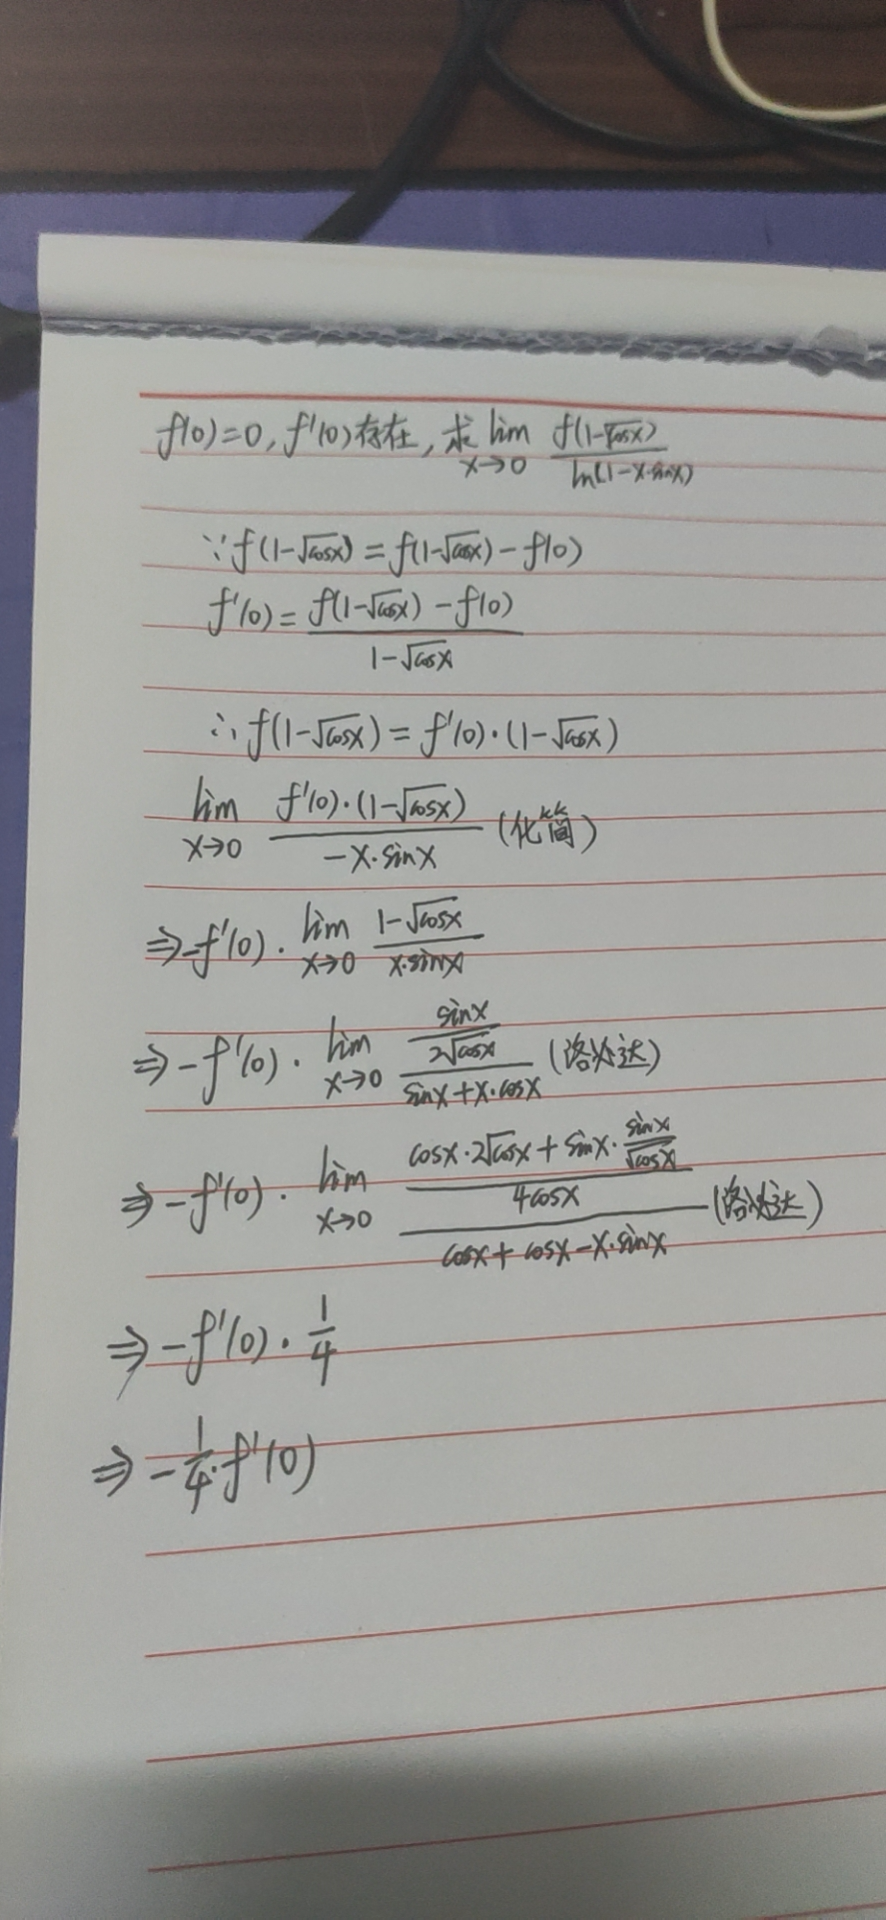 f(0)=0, f'(0)存在, 求 lim_{x→0} \frac{f(1-\sqrt{cosx})}{ln(1-x·sinx)}
∵ f(1-\sqrt{cosx}) = f(1-\sqrt{cosx}) - f(0)
f'(0) = \frac{f(1-\sqrt{cosx}) - f(0)}{1-\sqrt{cosx}}
∴ f(1-\sqrt{cosx}) = f'(0)·(1-\sqrt{cosx})
lim_{x→0} \frac{f'(0)·(1-\sqrt{cosx})}{-x·sinx} (化简)
⇒ -f'(0)· lim_{x→0} \frac{1-\sqrt{cosx}}{x·sinx}
⇒ -f'(0)· lim_{x→0} \frac{\frac{sinx}{2\sqrt{cosx}}}{sinx+x·cosx} (洛必达)
⇒ -f'(0)· lim_{x→0} \frac{\frac{cosx·2\sqrt{cosx}+sinx·\frac{sinx}{\sqrt{cosx}}}{4cosx}}{cosx+cosx-x·sinx} (洛必达)
⇒ -f'(0)·\frac{1}{4}
⇒ -\frac{1}{4}·f'(0)